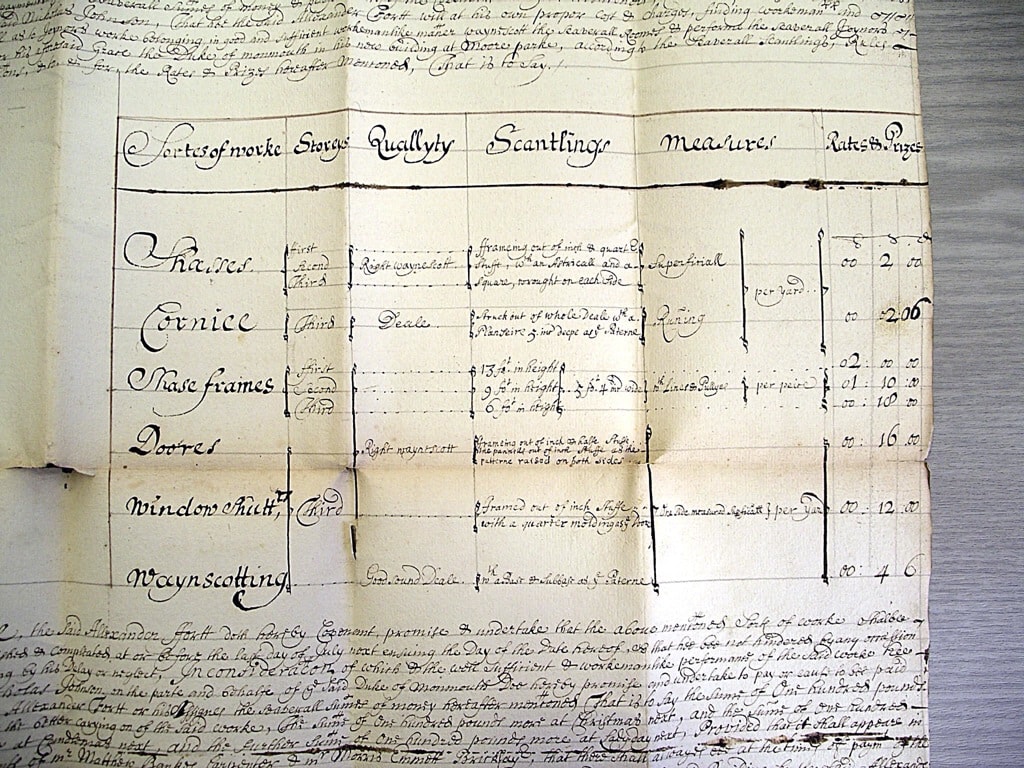 severall summes of money &
Nicholas Johnson, That he the said Alexander Fortt will at his own proper Cost & Charges, finding workemanpp and
all as to Joyners worke belonging in good and Sufficient workemanlike maner waynscott the seaverall Roomes & performe the seaverall Joynors
for his foresaid Grace the Duke of monmouth in his now building at Moore parke, according to the seaverall Scantlings, Rules
&c & for, the Rates & Prizes hereafter Mentoned, That is to Say./
Sortes of worke Storeys Quallyty Scantlings Measures Rates & Prizes
Shasses. First Second Third Right Waynescott. fframeing out of inch & quartr Stuff, wth an Astricall and a square, wrought on each side Superfitiall per yard 00 2 00
Cornice Third Deale Struck out of whole Deale wth a Planseire 5 inc deepe as ye Paterne Runing 00 02 06
Shase frames ffirst Second Third 13 fot in height 9 fot in height 6 fot in height 5 fot 4 incd wide wth Lines & Pullyes per peice 02 : 00 : 00 01 : 10 : 00 00 : 18 : 00
Doores Right waynscott frameing out of inch & halfe Stuffe the pannills out of inch Stuffe as the patterne raised on both sides 00 : 16 : 00
Window Shuttrs, Third framed out of inch Stuffe with a quarter molding One side measured per yard 00 : 12 : 00
Waynscotting Good sound Deale. wth a Base & Subbase as ye Paterne 00 : 4 6
the said Alexander ffortt doth hereby Covenant, promise & undertake that the above mentoned Sorts of worke shalbe
& Compleated, at or before the last day of July next ensuing the Day of the Date hereof, as that hee bee not hindered by any occasion
by his Delay or neglect, In consideracon of which & the well Sufficient & workemanlike performance of the said worke hee
Nicholas Johnson, on the parte and behalfe of ye said Duke of Monmouth Doe hereby promise and undertake to pay or cause to bee paid
Alexander Fortt or his Assignes the seaverall Sumes of money hereafter mentoned That is to Say the Sume of One hundred pounds
the better carying on of the said worke, The Sume of One hundred pounds more at Christmas next, and the sume of one hundred
at Candlemas next, and the further Sume of One hundred pounds more at Ladyday next, Provided that it shall appeare in
of mr Matthew Bankes Carpenter & mr Morris Emmett Bricklay, that there shall at the time of paymt of the